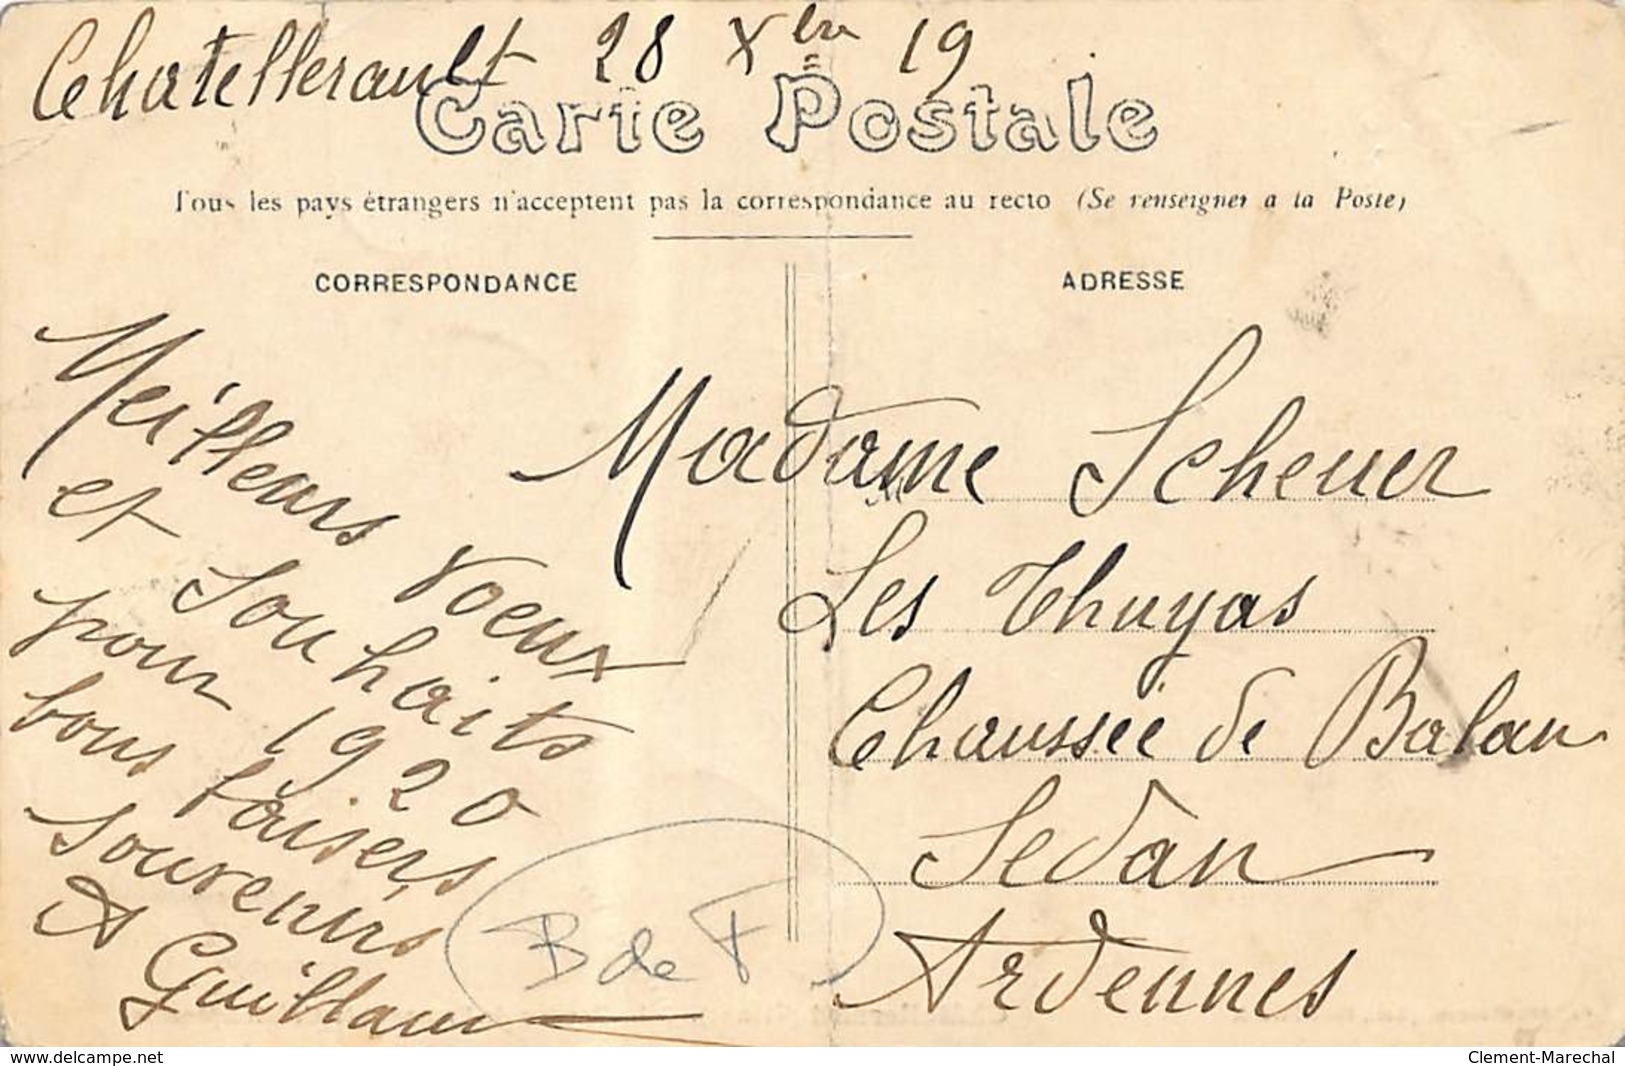 Chatellerault 28 Xbre 19
Carte Postale
Tous les pays étrangers n'acceptent pas la correspondance au recto (Se renseigner a la Poste)
CORRESPONDANCE
Meilleurs Voeux
et Souhaits
pour 1920
bons baisers
Souvenirs
A Guillaum
B de F
ADRESSE
Madame Scheuer
Les Thuyas
Chaussée de Balan
Sedan
Ardennes
www.delcampe.net
Clement-Marechal